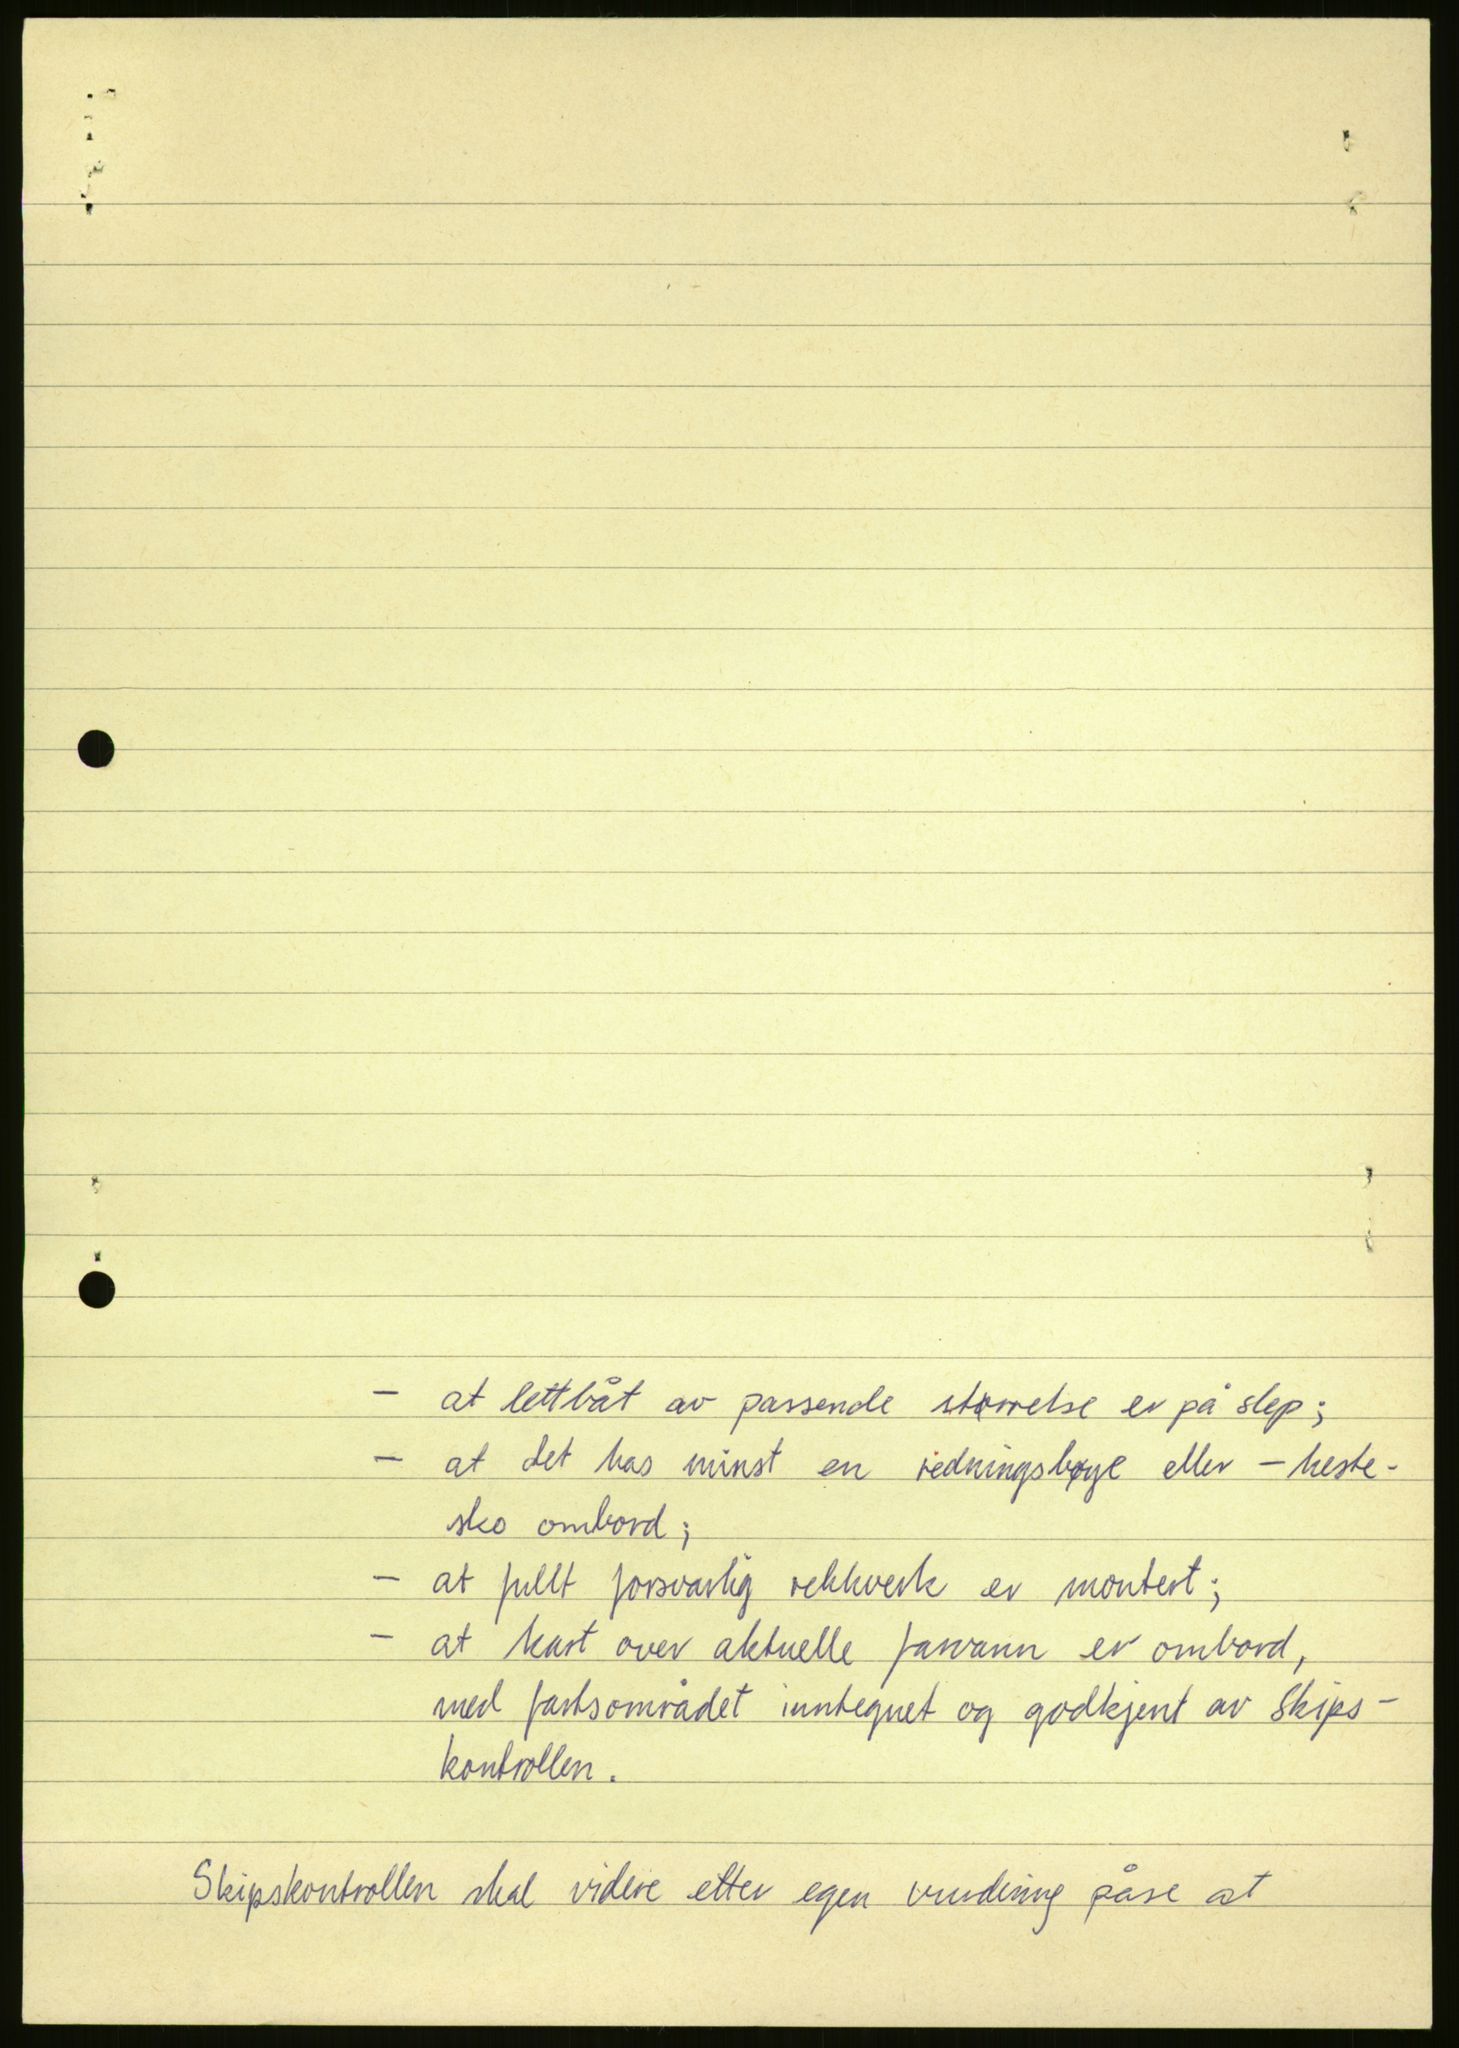 - at lettbåt av passende størrelse er på slep;
- at det has minst en redningsbøye eller - heste-
sko ombord;
- at fullt forsvarlig rekkverk er montert;
- at kart over aktuelle farvann er ombord,
med fartsområdet inntegnet og godkjent av Skips-
kontrollen.
Skipskontrollen skal videre etter egen vurdering påse at